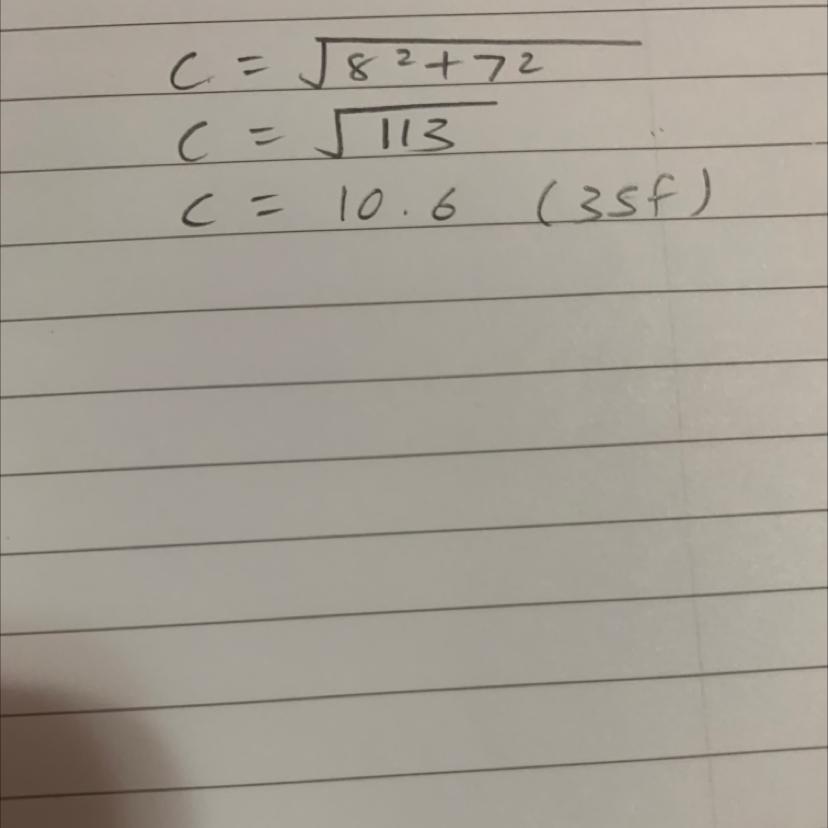 c = √8²+7²
c = √113
c = 10.6 (3sf)